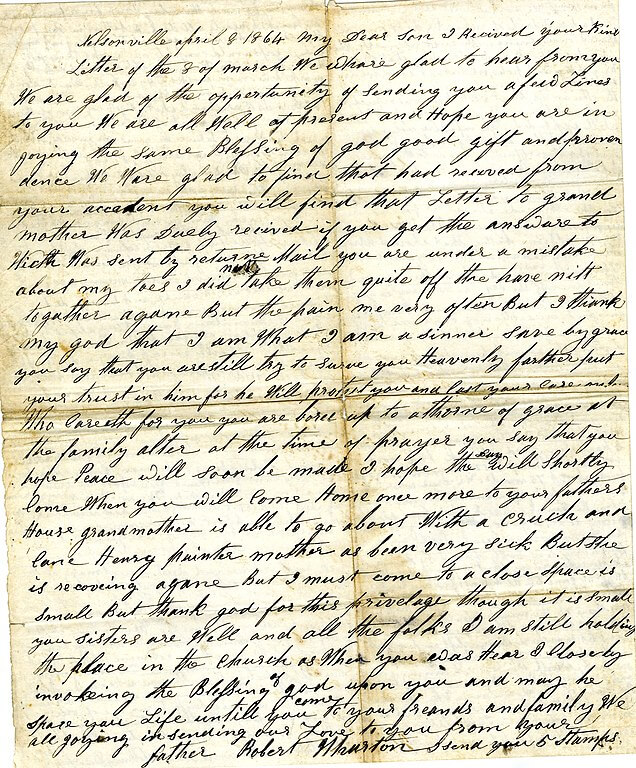 Nelsonville april 8 1864 My Dear Son I Recived your Kind
Letter of the 8 of march We whare glad to hear from you
We are glad of the opportunity of Sending you a few Lines
to you We are all Well at present and Hope you are in
joying the same Blessing of god good gift and proven
dence We Ware glad to find that had recved from
your accedent you will find that Letter to grand
mother Has Dueby recived if you get the answare to
Hicth Was sent by returne Mail you are under a mistake
about my toes I did not take them quite off the have nitt
togather agane But the pain me very often But I thank
my god that I am What I am a sinner save by grace
you say that you are still try to Surve you Heavenly farther put
your trust in him for he Will protict you and Cast your Care
Who Careeth for you you are bore up to a throne of grace at
the family alter at the time of prayer you say that you
hope Peace will soon be made I hope the day Will Shortly
Come When you will Come Home once more to your fathers
House grandmother is able to go about With a cruch and
Cane Henry painter mother as bean very sick But she
is recoveing agane But I must come to a close Space is
small But thank god for this privelage though it is small
you sisters are Well and all the folks I am still holding
the place in the Church as When you was Hear I Closely
invokeing the Blessing of god upon you and may he
spare you Life untill you come to your freands and family We
all joying in sending our Love to you from your
father Robert Wharton I send you 5 Stamps